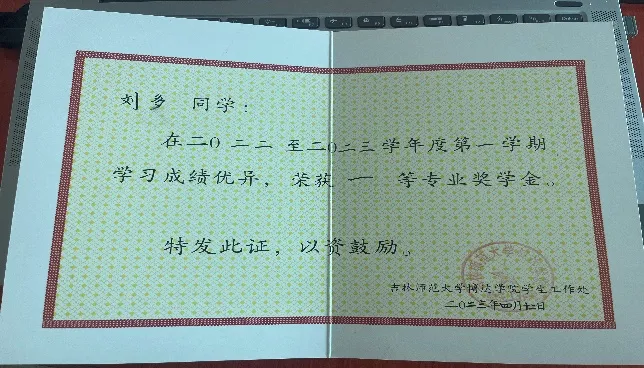 刘多 同学：
在二〇二二至二〇二三学年度第一学期
学习成绩优异，荣获 一 等专业奖学金。
特发此证，以资鼓励。
吉林师范大学博达学院学生工作处
二〇二三年四月